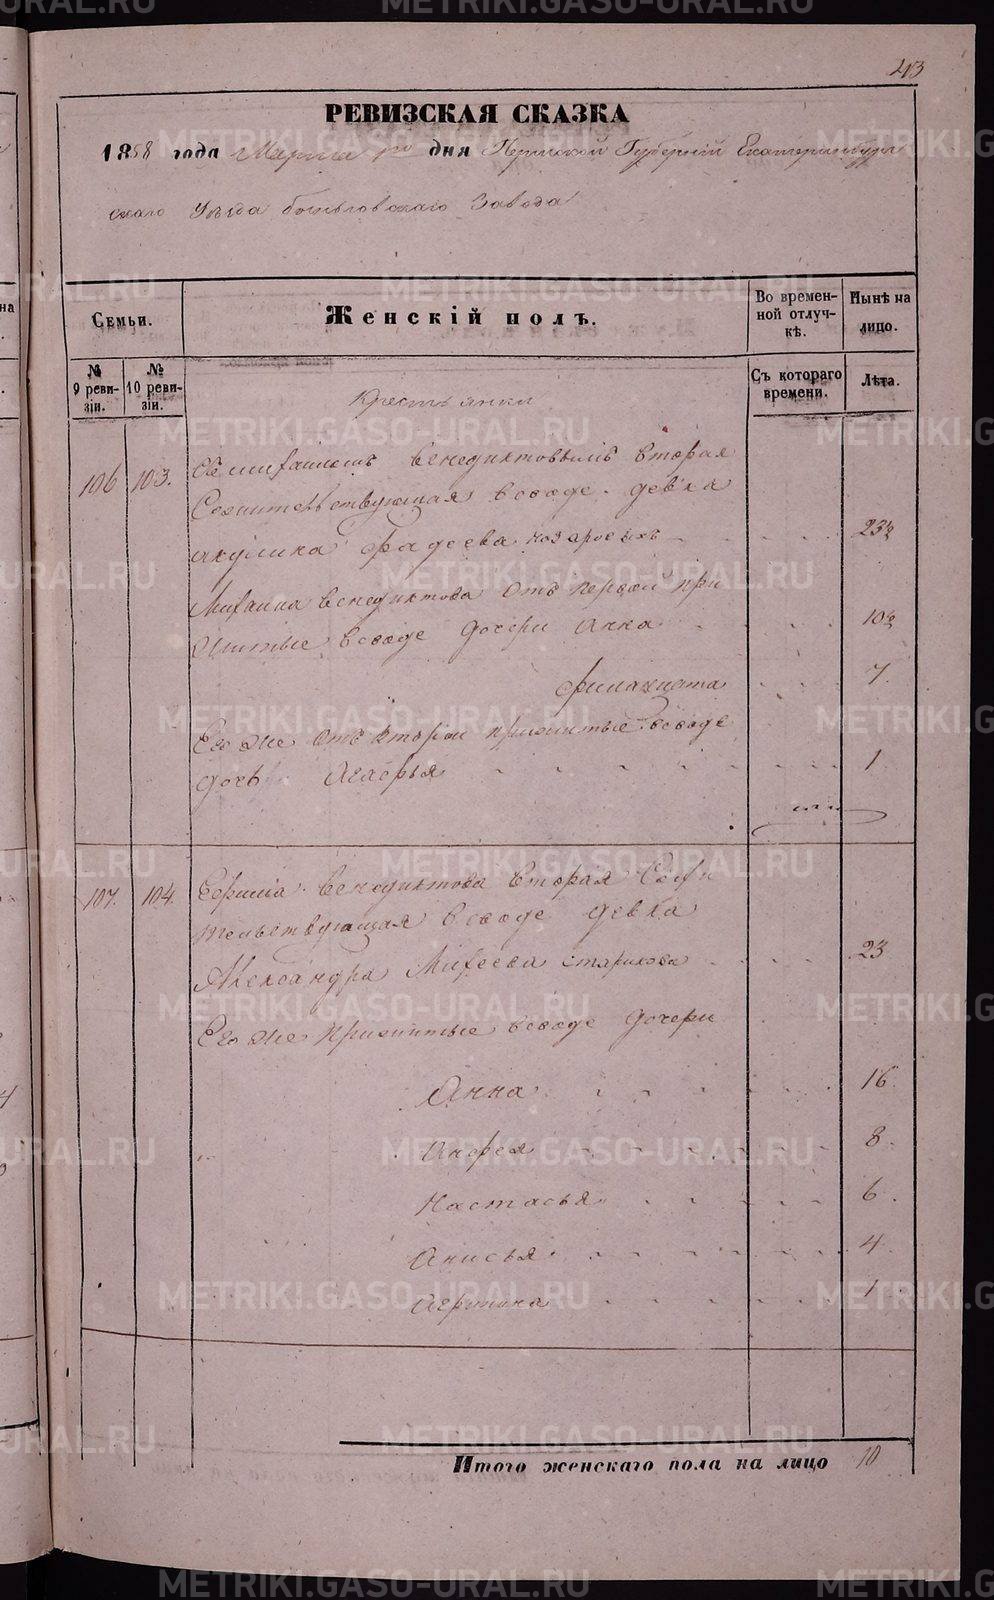 43
РЕВИЗСКАЯ СКАЗКА
1858 года Марта 1го дня Пермской Губерніи Екатеринбург
скаго Уезда Завода
Семьи.
Женскій полъ.
Во времен-
ной отлуч-
кѣ.
Нынѣ на
лицо.
№
9 реви-
зіи.
№
10 реви-
зіи.
Съ котораго
времени.
Лѣта.
Крестьянки
106 103. венедиктовымъ вторая
Сожительствующая всводе девка
акулина Фадеева 23½
Михаила венедиктова Отъ первой при
житые всводе дочери Анна 10½
филицата 7.
Его же Отъ второй прижитые всводе
дочь Агафья 1
107. 104. венедиктова вторая Сожи
тельствующая всводе девка
Александра Михеева старикова 23
Его же прижитые всводе дочери
Анна 16
8.
Настасья 6.
Анисья 4.
1
Итого женскаго пола на лицо 10
METRIKI.GASO-URAL.RU